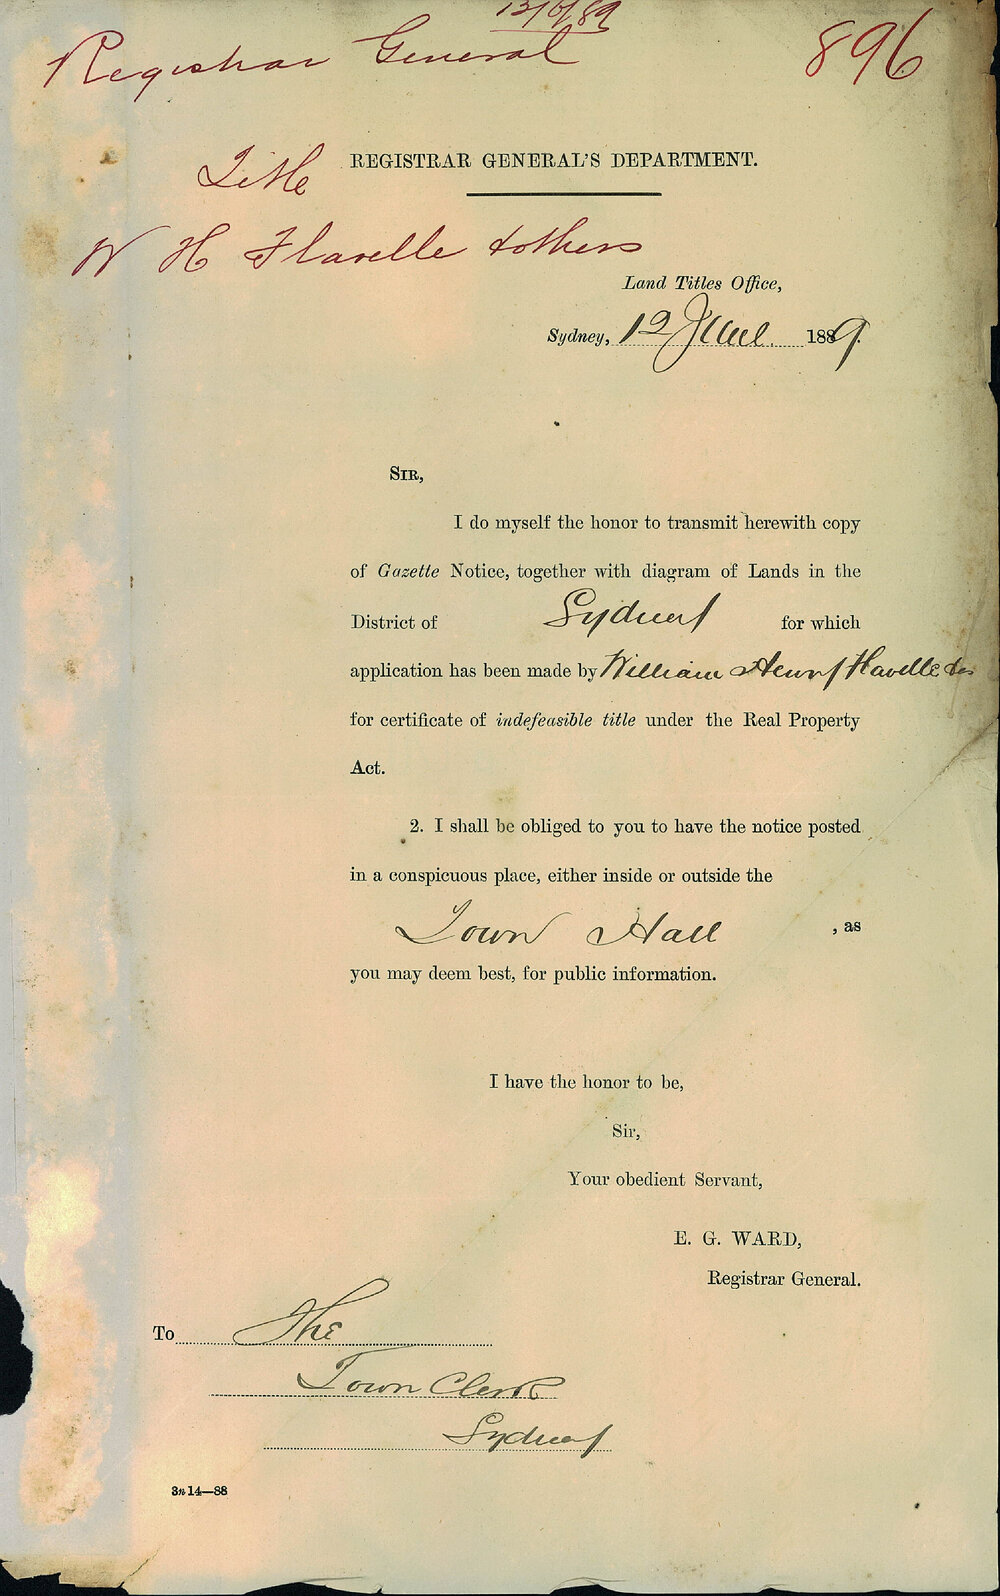 13/6/89
Registrar General
896
Title
REGISTRAR GENERAL'S DEPARTMENT.
W H Flavelle & others
Land Titles Office,
Sydney, 12 June 1889.
SIR,
I do myself the honor to transmit herewith copy
of Gazette Notice, together with diagram of Lands in the
District of Sydney for which
application has been made by William Henry Flavelle &ors
for certificate of indefeasible title under the Real Property
Act.
2. I shall be obliged to you to have the notice posted
in a conspicuous place, either inside or outside the
Town Hall, as
you may deem best, for public information.
I have the honor to be,
Sir,
Your obedient Servant,
E. G. WARD,
Registrar General.
To The
Town Clerk
Sydney
3n14—88